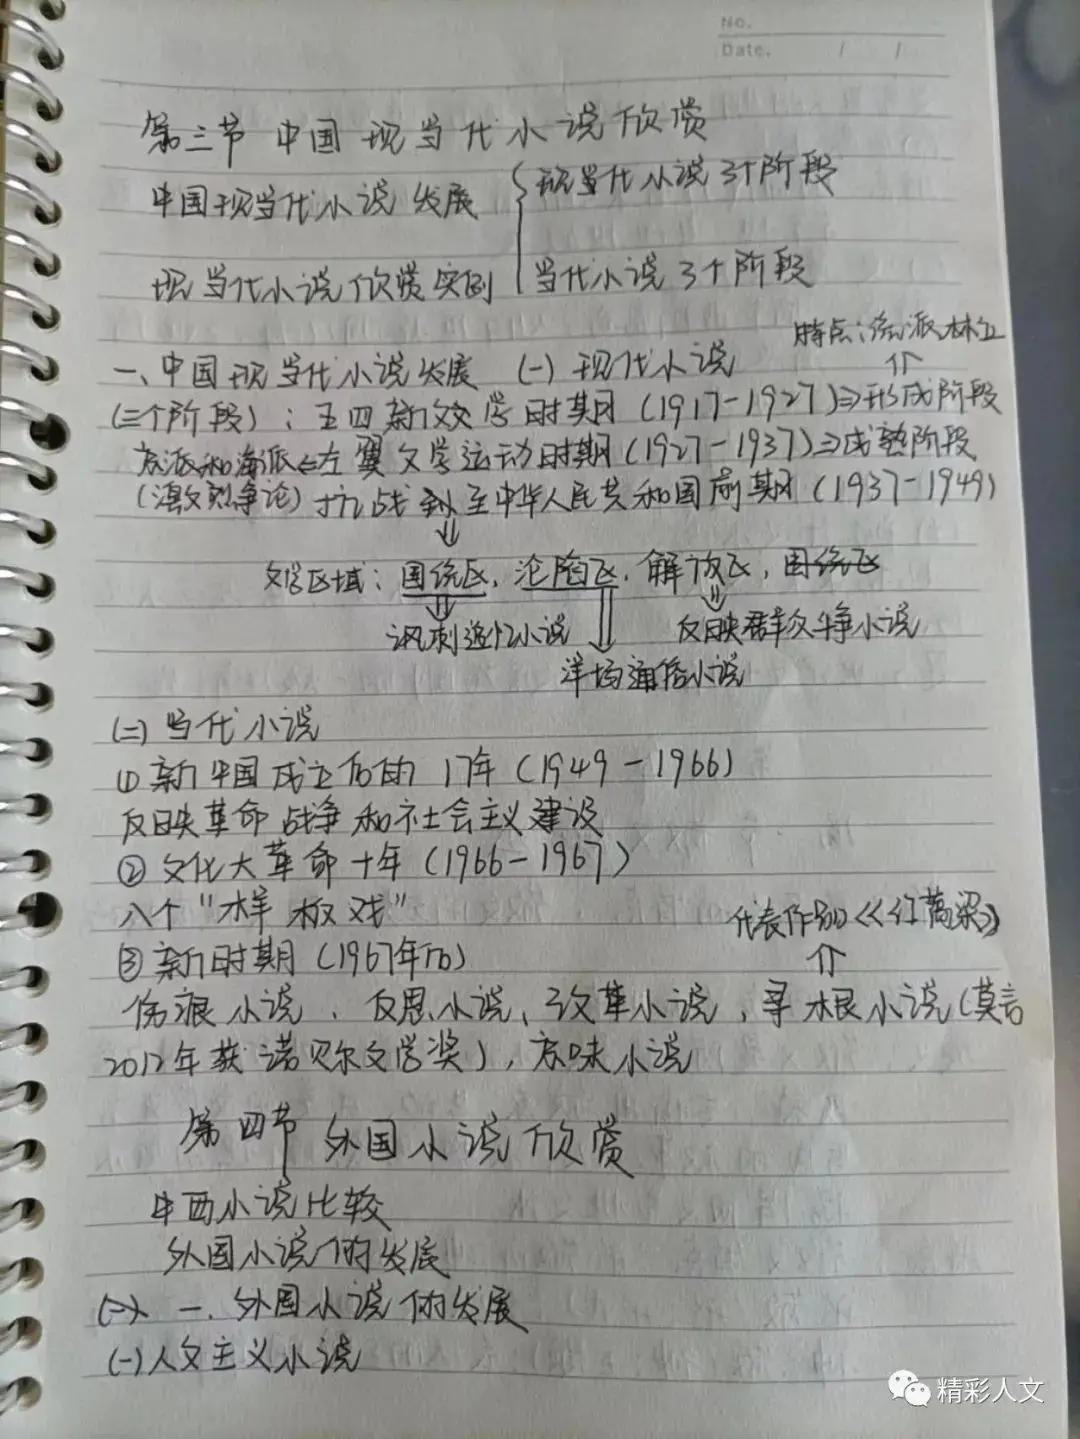 No.
Date. / /
第三节 中国现当代小说欣赏
中国现当代小说发展 { 现当代小说3个阶段
现当代小说欣赏实例 当代小说3个阶段
特点:流派林立
一、中国现当代小说发展 (一) 现代小说 ⇑
(三个阶段):五四新文学时期(1917-1927)⇒形成阶段
京派和海派⇐左翼文学运动时期(1927-1937)⇒成熟阶段
(激烈争论) 抗战到至中华人民共和国前期(1937-1949)
⇓
文学区域:国统区,沦陷区,解放区,国统区
讽刺追忆小说 反映群众斗争小说
洋场通俗小说
(二)当代小说
①新中国成立后的17年(1949-1966)
反映革命战争和社会主义建设
②文化大革命十年(1966-1967)
八个“样板戏” 代表作品《红高粱》
③新时期(1967年后) ⇑
伤痕小说、反思小说、改革小说,寻根小说(莫言
2012年获诺贝尔文学奖),京味小说
第四节 外国小说欣赏
中西小说比较
外国小说的发展
(一) 一.外国小说的发展
(一)人文主义小说
精彩人文